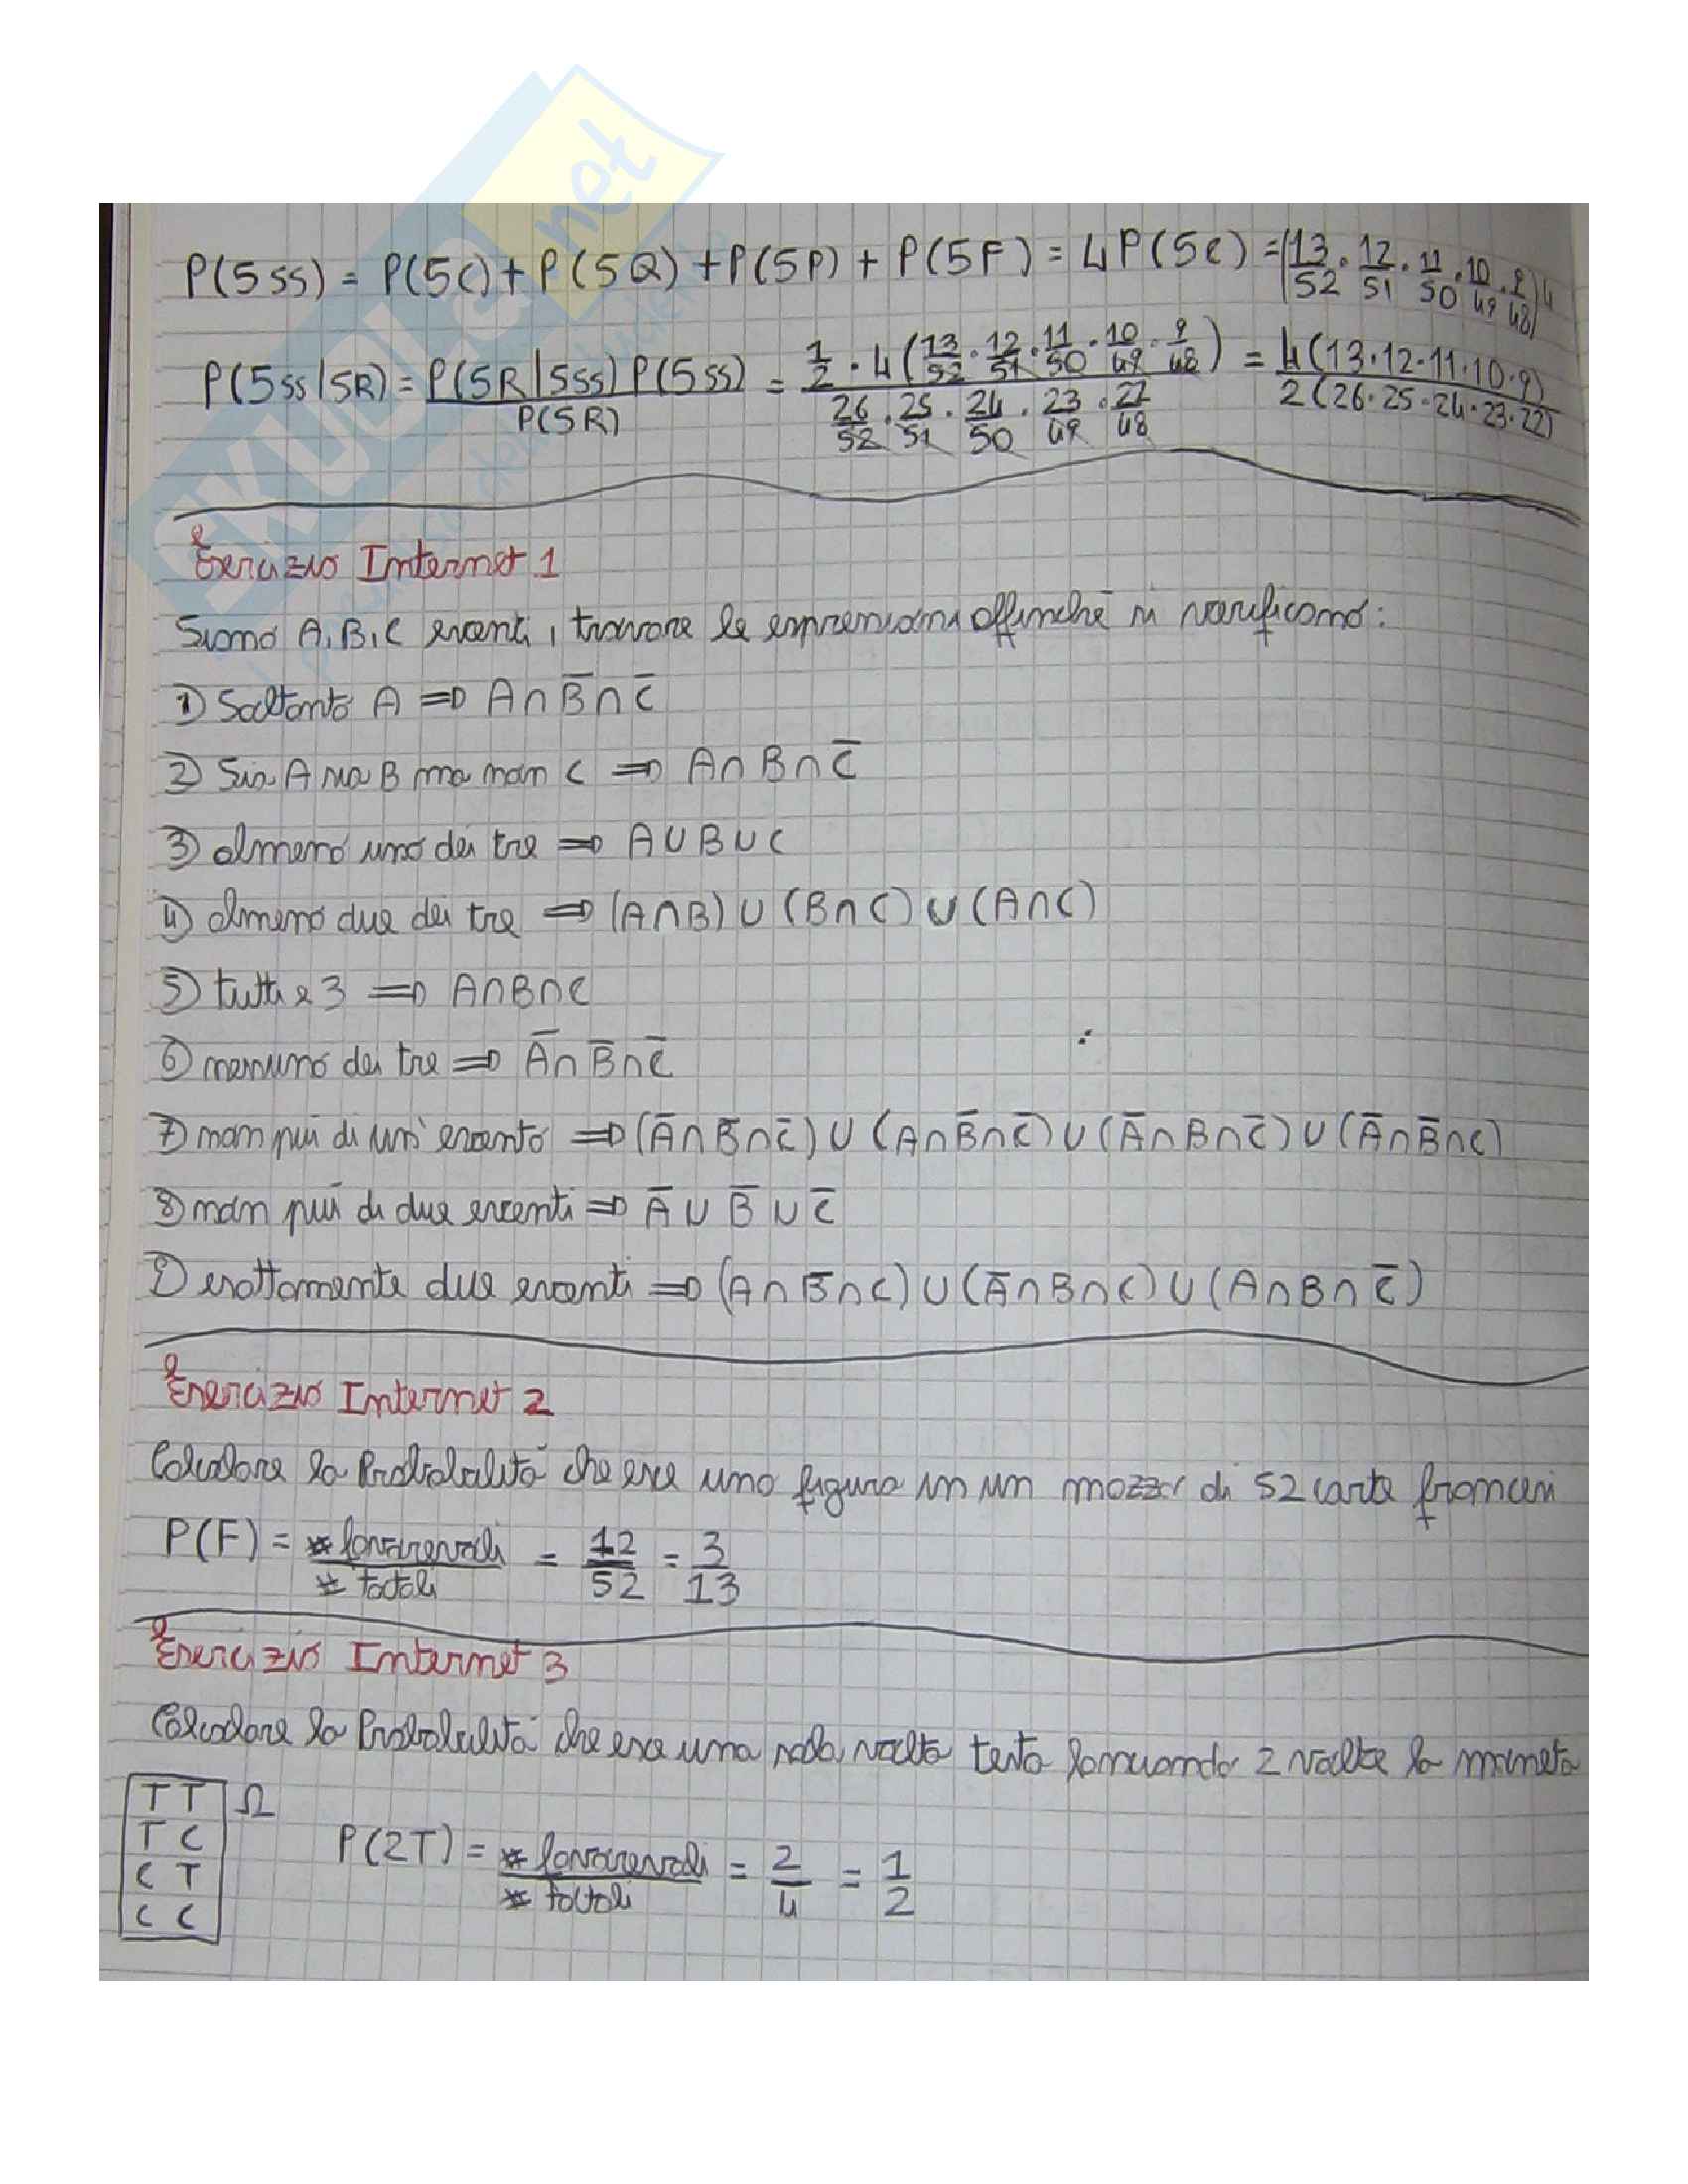 SKUOLA.net
P(5ss) = P(5C) + P(5Q) + P(5P) + P(5F) = 4P(5C) = (13/52 · 12/51 · 11/50 · 10/49 · 9/48)4
P(5ss|5R) = P(5R|5ss) P(5ss) / P(5R) = 1/2 · 4(13/52 · 12/51 · 11/50 · 10/49 · 9/48) / 26/52 · 25/51 · 24/50 · 23/49 · 22/48 = 4(13·12·11·10·9) / 2(26·25·24·23·22)
Esercizio Internet 1
Siano A, B, C eventi, trovare le espressioni affinché si verificano:
1) Soltanto A ⇒ A∩B̅∩C̅
2) Sia A sia B ma non C ⇒ A∩B∩C̅
3) almeno uno dei tre ⇒ A∪B∪C
4) almeno due dei tre ⇒ (A∩B)∪(B∩C)∪(A∩C)
5) tutti e 3 ⇒ A∩B∩C
6) nessuno dei tre ⇒ A̅∩B̅∩C̅
7) non più di un' evento ⇒ (A̅∩B̅∩C̅)∪(A∩B̅∩C̅)∪(A̅∩B∩C̅)∪(A̅∩B̅∩C)
8) non più di due eventi ⇒ A̅∪B̅∪C̅
9) esattamente due eventi ⇒ (A∩B̅∩C)∪(A̅∩B∩C)∪(A∩B∩C̅)
Esercizio Internet 2
Calcolare la Probabilità che esce una figura in un mazzo di 52 carte francesi
P(F) = * favorevoli / * totali = 12/52 = 3/13
Esercizio Internet 3
Calcolare la Probabilità che esce una sola volta testa lanciando 2 volte la moneta
T T Ω
T C
C T
C C
P(2T) = * favorevoli / * totali = 2/4 = 1/2